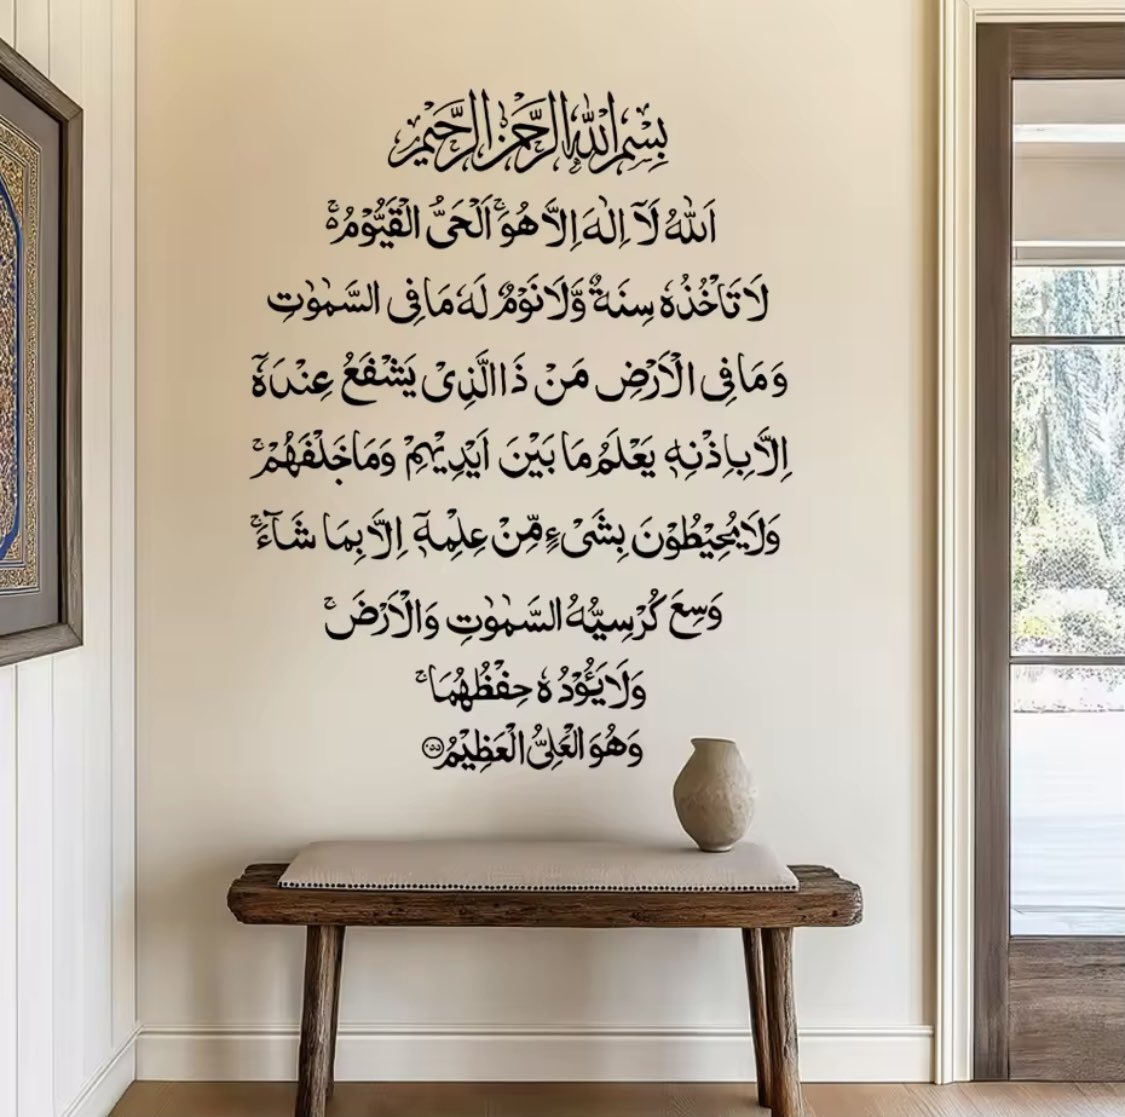 بِسْمِ اللّٰهِ الرَّحْمٰنِ الرَّحِيْمِ
اَللّٰهُ لَاۤ اِلٰهَ اِلَّا هُوَۚ اَلْحَىُّ الْقَيُّوْمُ ۚ
لَا تَاْخُذُهٗ سِنَةٌ وَّلَا نَوْمٌ لَهٗ مَا فِى السَّمٰوٰتِ
وَمَا فِى الْاَرْضِ مَنْ ذَا الَّذِىْ يَشْفَعُ عِنْدَهٗۤ
اِلَّا بِاِذْنِهٖ يَعْلَمُ مَا بَيْنَ اَيْدِيْهِمْ وَمَا خَلْفَهُمْ ۚ
وَلَا يُحِيْطُوْنَ بِشَىْءٍ مِّنْ عِلْمِهٖۤ اِلَّا بِمَا شَآءَ ۚ
وَسِعَ كُرْسِيُّهُ السَّمٰوٰتِ وَالْاَرْضَ ۚ
وَلَا يَـُٔوْدُهٗ حِفْظُهُمَا ۚ
وَهُوَ الْعَلِىُّ الْعَظِيْمُ ٢٥٥